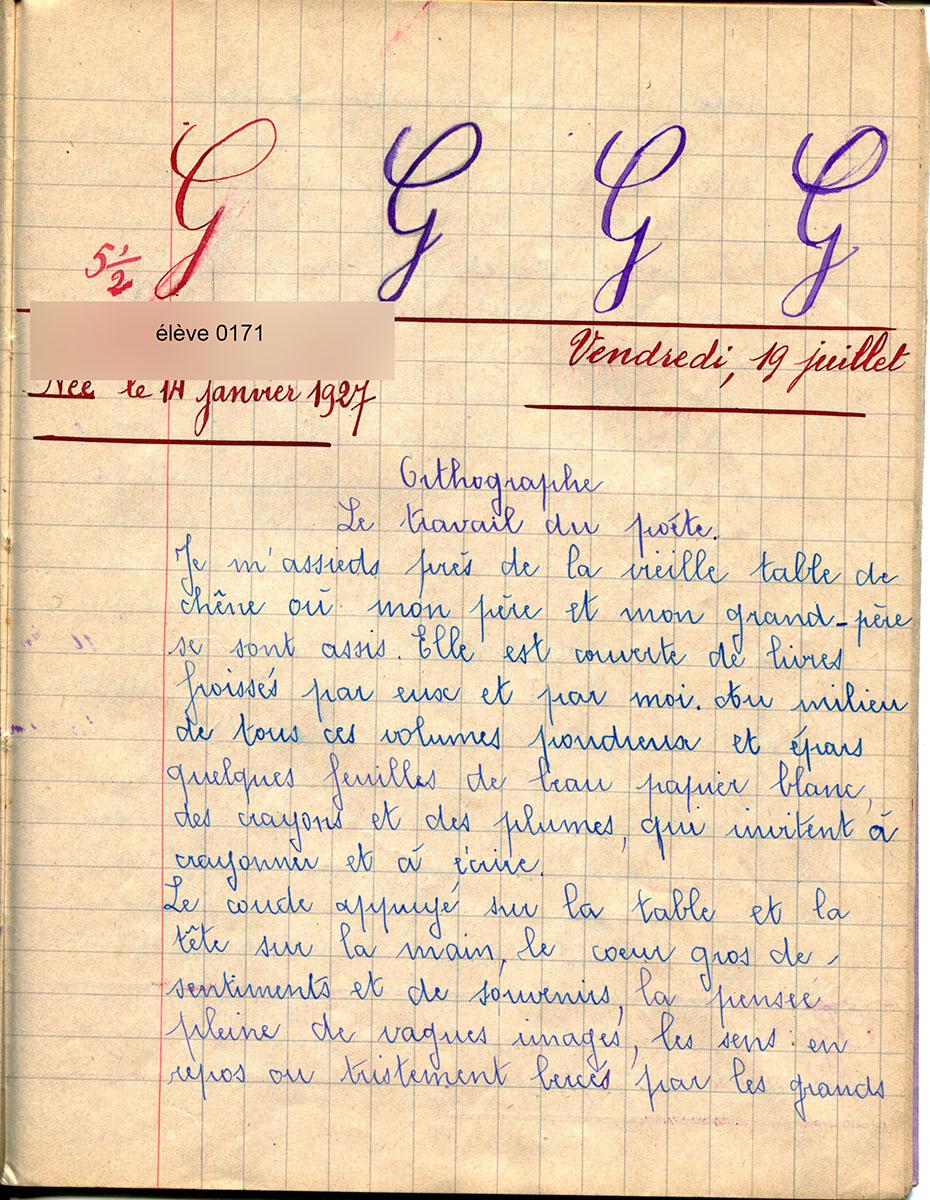 G G G G
5 1/2
élève 0171
Vendredi, 19 juillet
Née le 14 janvier 1927
Orthographe
Le travail du poète.
Je m'assieds près de la vieille table de
chêne où mon père et mon grand-père
se sont assis. Elle est couverte de livres
froissés par eux et par moi. Au milieu
de tous ces volumes poudreux et épars
quelques feuilles de beau papier blanc,
des crayons et des plumes, qui invitent à
crayonner et à écrire.
Le coude appuyé sur la table et la
tête sur la main, le coeur gros de
sentiments et de souvenirs, la pensée
pleine de vagues images, les sens en
repos ou tristement bercés par les grands